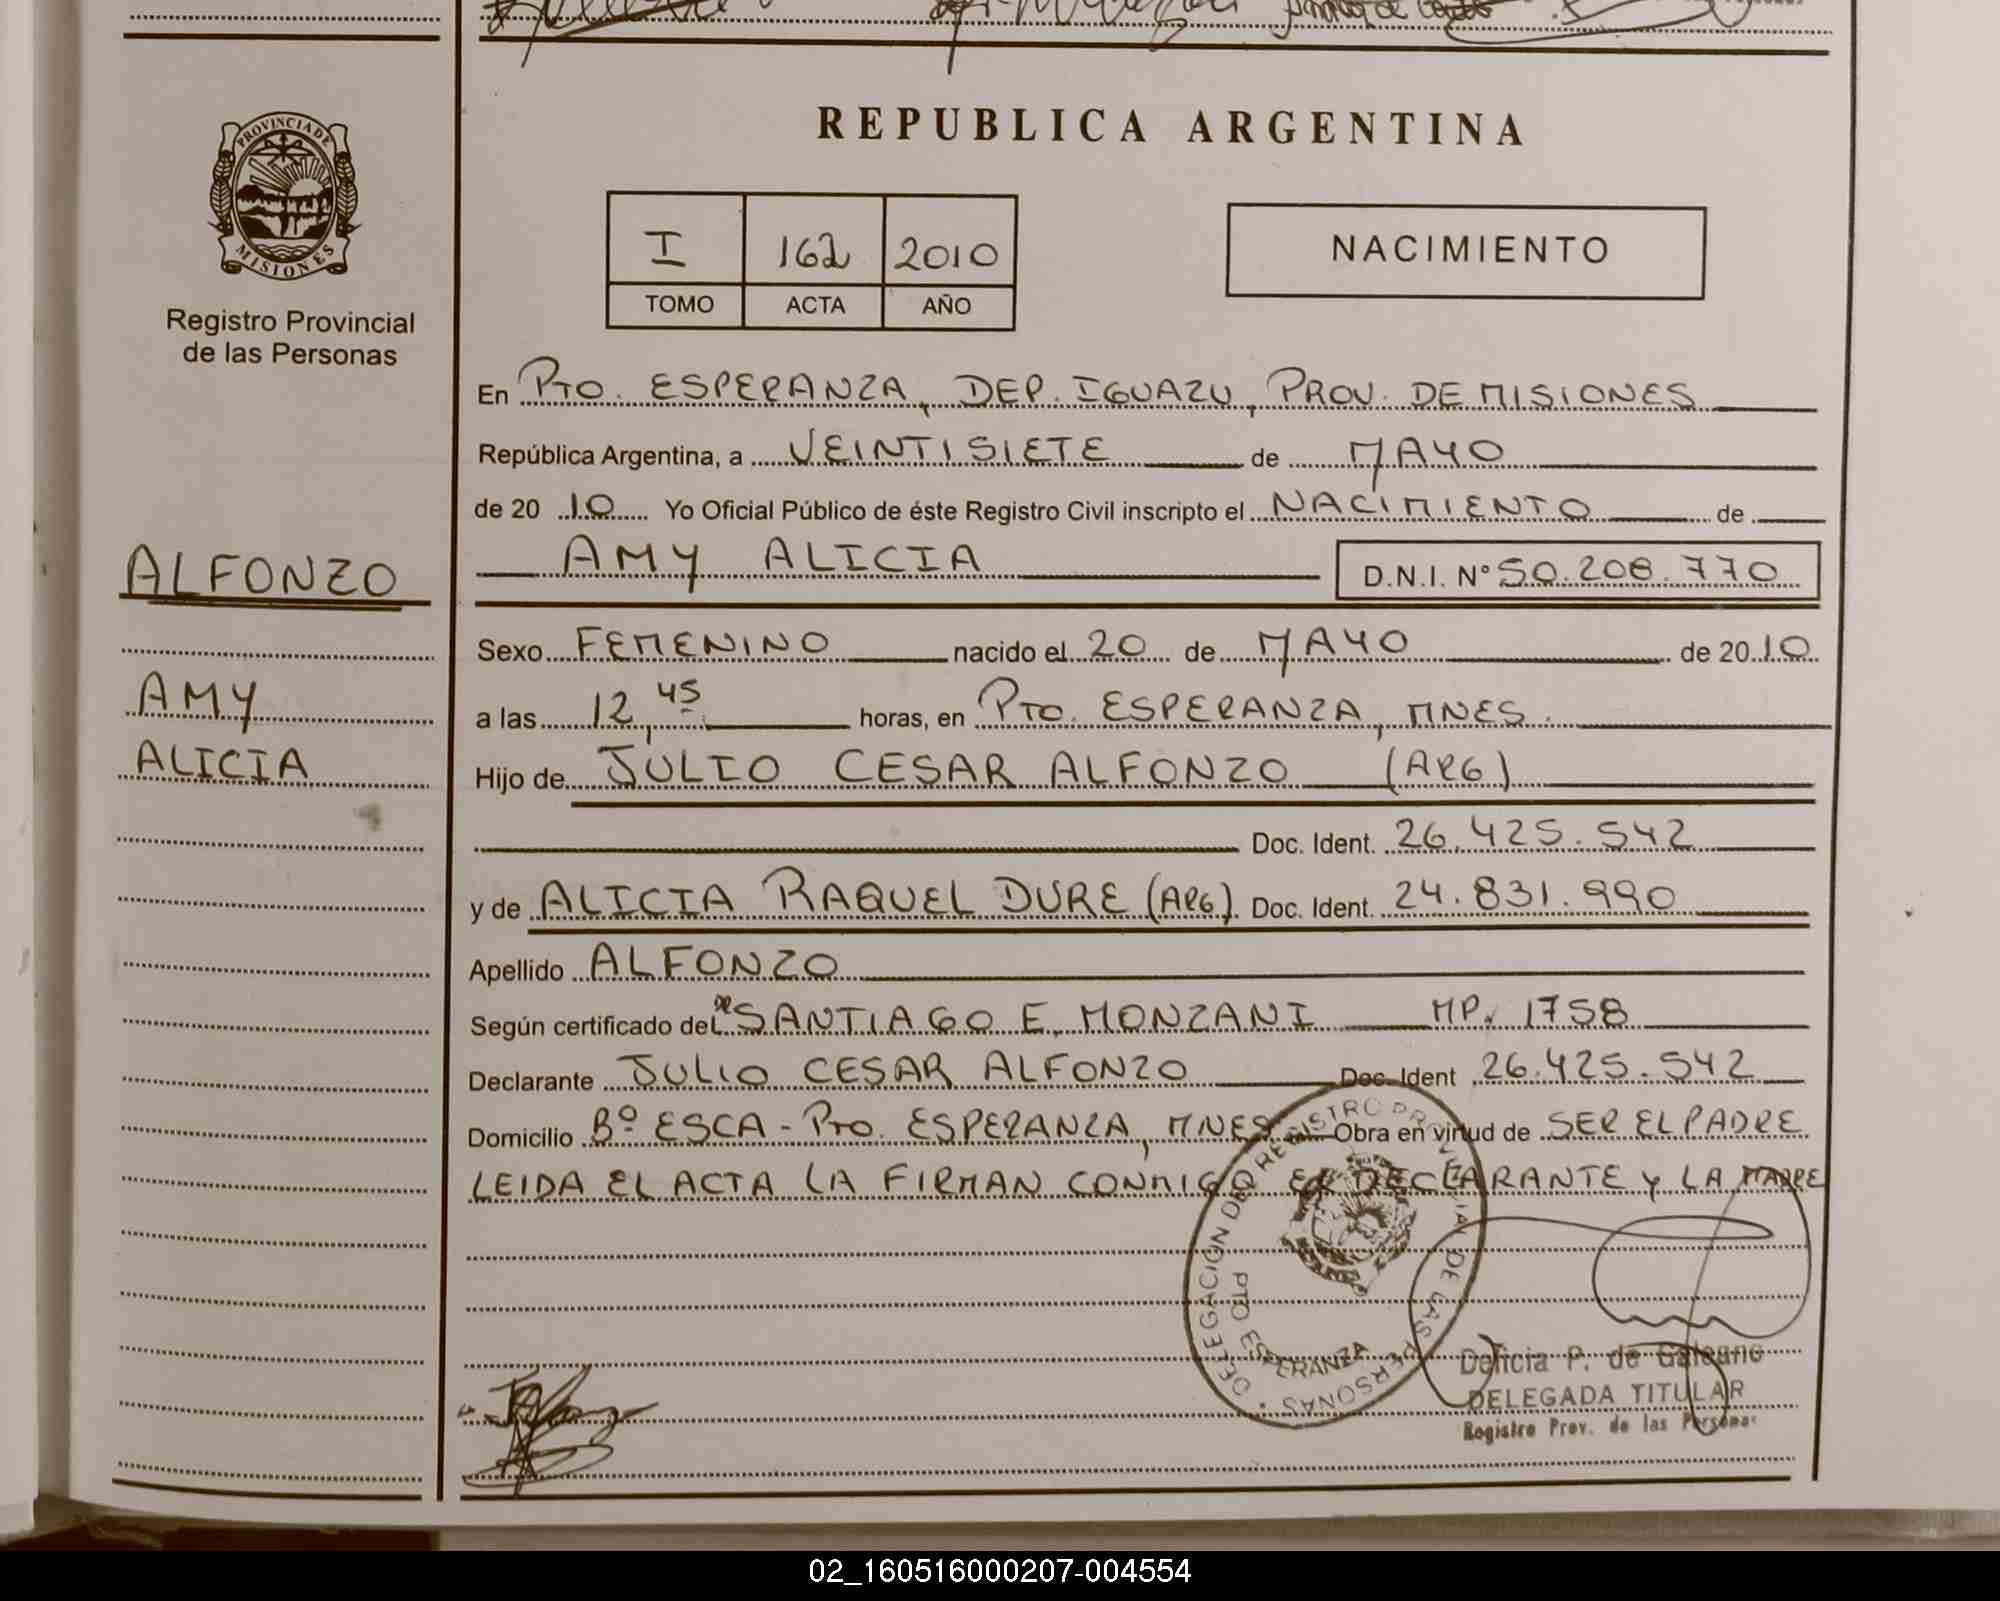 REPUBLICA ARGENTINA
PROVINCIA DE
MISIONES
Registro Provincial
de las Personas
I 162 2010
TOMO ACTA AÑO
NACIMIENTO
En PTO. ESPERANZA, DEP. IGUAZU, PROV. DE MISIONES
República Argentina, a VEINTISIETE de MAYO
de 20 10 Yo Oficial Público de éste Registro Civil inscripto el NACIMIENTO de
AMY ALICIA D.N.I. N° 50.208.770
ALFONZO
AMY
ALICIA
Sexo FEMENINO nacido el 20 de MAYO de 20 10
a las 12,45 horas, en PTO. ESPERANZA, MNES.
Hijo de JULIO CESAR ALFONZO (ARG)
Doc. Ident. 26.425.542
y de ALICIA RAQUEL DURE (ARG). Doc. Ident. 24.831.990
Apellido ALFONZO
Según certificado del SANTIAGO E. MONZANI MP. 1758
Declarante JULIO CESAR ALFONZO Doc. Ident 26.425.542
Domicilio Bº ESCA - PTO. ESPERANZA, MNES Obra en virtud de SER EL PADRE
LEIDA EL ACTA LA FIRMAN CONMIGO EL DECLARANTE Y LA MADRE
DELEGACION DEL REGISTRO PROVINCIAL DE LAS PERSONAS
PTO ESPERANZA
Delicia P. de Galeano
DELEGADA TITULAR
Registro Prov. de las Personas
02_160516000207-004554